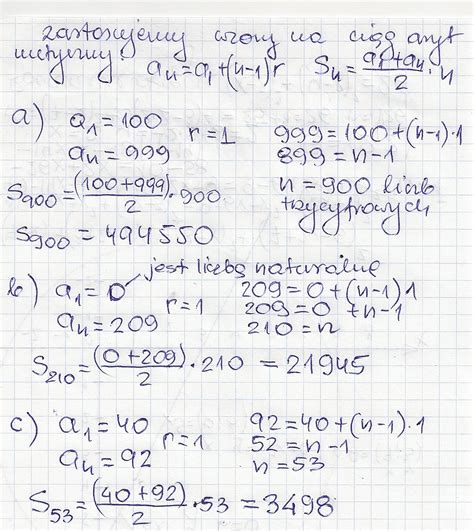 zastosujemy wzory na ciąg aryt
metyczny: aₙ=a₁+(n-1)r Sₙ=(a₁+aₙ)/2 · n
a) a₁=100 r=1 999=100+(n-1)·1
aₙ=999 899=n-1
S₉₀₀=(100+999)/2 · 900 n=900 liczb
trzycyfrowych
S₉₀₀=494550
jest liczbą naturalną
b) a₁=0 r=1 209=0+(n-1)1
aₙ=209 209=0+n-1
210=n
S₂₁₀=(0+209)/2 · 210 = 21945
c) a₁=40 r=1 92=40+(n-1)·1
aₙ=92 52=n-1
n=53
S₅₃=(40+92)/2 · 53 = 3498